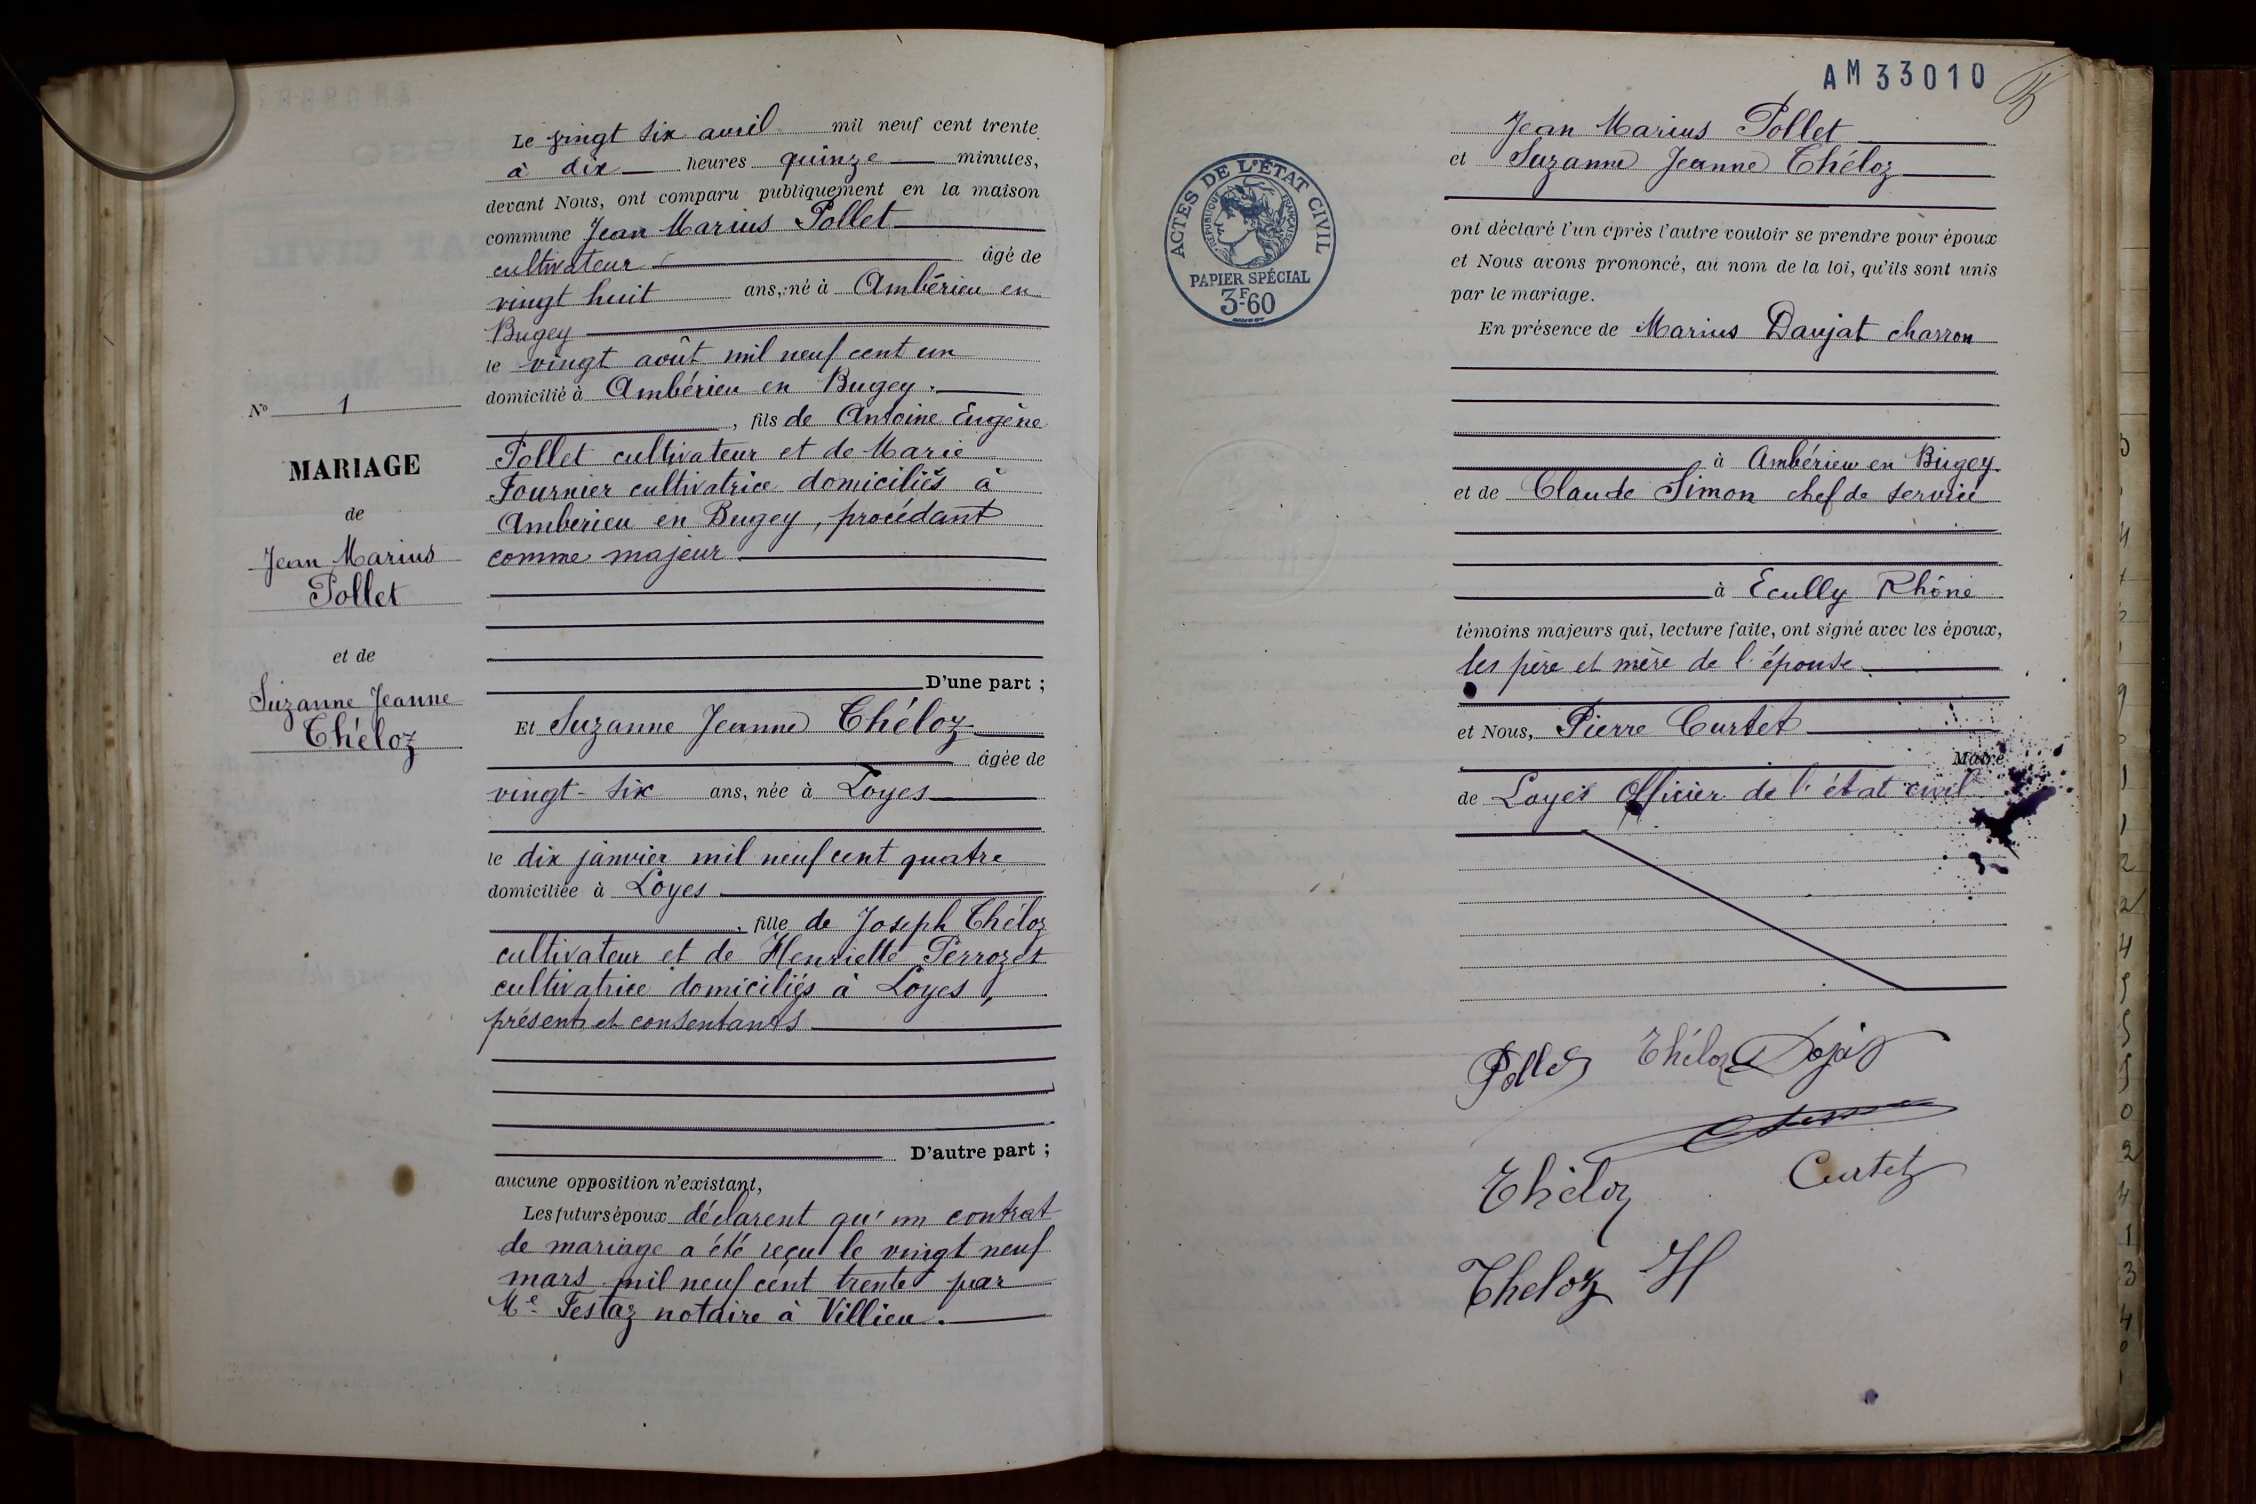 N° 1
MARIAGE
de
Jean Marius
Pollet
et de
Suzanne Jeanne
Théloz
Le vingt six avril mil neuf cent trente
à dix heures quinze minutes,
devant Nous, ont comparu publiquement en la maison
commune Jean Marius Pollet
cultivateur âgé de
vingt huit ans, né à Ambérieu en
Bugey
le vingt août mil neuf cent un
domicilié à Ambérieu en Bugey.
, fils de Antoine Eugène
Pollet cultivateur et de Marie
Fournier cultivatrice domiciliés à
Amberieu en Bugey, procédant
comme majeur
D'une part ;
Et Suzanne Jeanne Théloz
âgée de
vingt-six ans, née à Loyes
le dix janvier mil neuf cent quatre
domiciliée à Loyes
, fille de Joseph Théloz
cultivateur et de Henriette Perrozet
cultivatrice domiciliés à Loyes,
présents et consentants
D'autre part ;
aucune opposition n'existant,
Les futurs époux déclarent qu'un contrat
de mariage a été reçu le vingt neuf
mars mil neuf cent trente par
Me Festaz notaire à Villieu.
AM33010
ACTES DE L'ÉTAT CIVIL
RÉPUBLIQUE FRANÇAISE
PAPIER SPÉCIAL
3F60
Jean Marius Pollet
et Suzanne Jeanne Théloz
ont déclaré l'un après l'autre vouloir se prendre pour époux
et Nous avons prononcé, au nom de la loi, qu'ils sont unis
par le mariage.
En présence de Marius Daujat charron
à Ambérieu en Bugey
et de Claude Simon chef de service
à Ecully Rhône
témoins majeurs qui, lecture faite, ont signé avec les époux,
les père et mère de l'épouse
et Nous, Pierre Curtet
Maire
de Loyes Officier de l'état civil
Pollet Théloz
Théloz Curtet
Theloz H